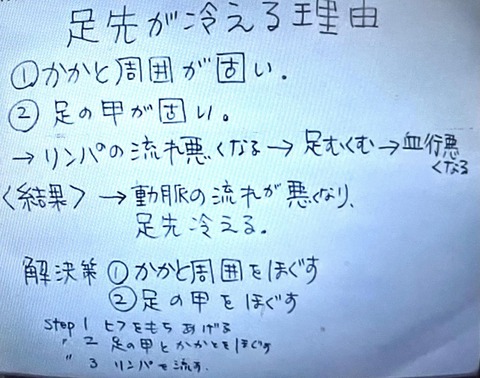 足先が冷える理由
①かかと周囲が固い。
②足の甲が固い。
→リンパの流れ悪くなる→足むくむ→血行悪くなる
<結果>→動脈の流れが悪くなり、
足先冷える。
解決策 ①かかと周囲をほぐす
②足の甲をほぐす
step 1 ヒフをもちあげる
〃 2 足の甲とかかとをほぐす
〃 3 リンパを流す.